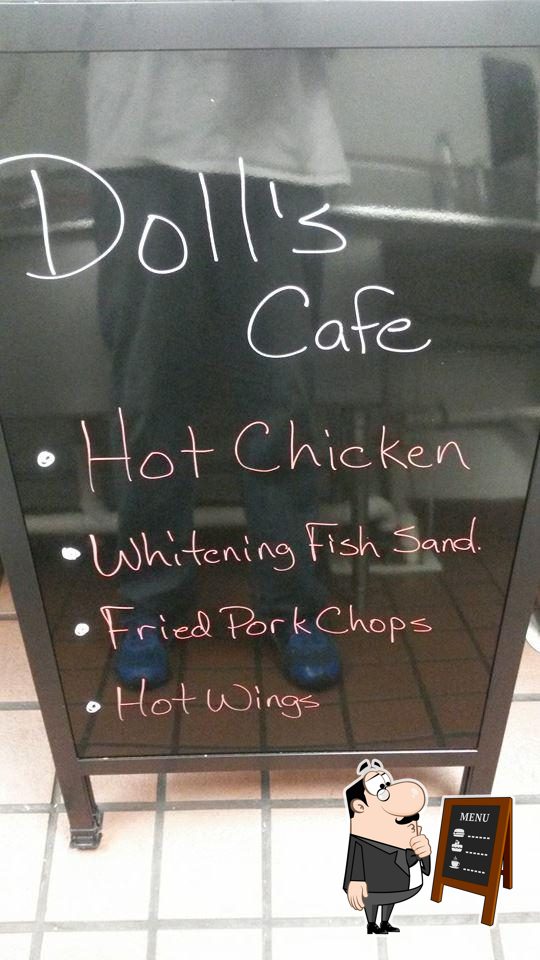 Doll's
Cafe
• Hot Chicken
• Whitening Fish Sand.
• Fried Pork Chops
• Hot Wings
MENU